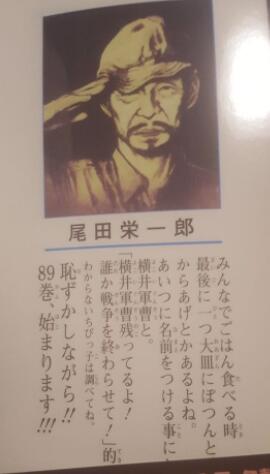 尾田栄一郎
みんなでごはん食べる時
最後に一つ大皿にぽつんと
からあげとかあるよね。
あいつに名前をつける事に
横井軍曹と。
「横井軍曹残ってるよ!
誰か戦争を終わらせて!」的な
わからないちびっ子は調べてね。
恥ずかしながら!!
89巻、始まります!!!